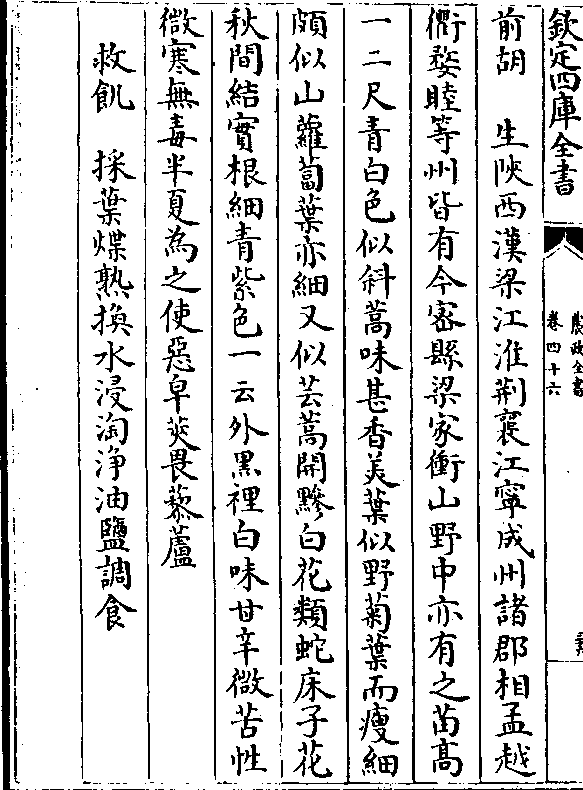 欽定四庫全書
農政全書
卷四十六
前胡　生陜西漢梁江淮荆襄江寧成州諸郡相孟越
衢婺睦等州皆有今密縣梁家衝山野中亦有之苗高
一二尺青白色似斜蒿味甚香美葉似野菊葉而瘦細
頗似山蘿蔔葉亦細又似芸蒿開黲白花類蛇床子花
秋間結實根細青紫色一云外黒裡白味甘辛微苦性
微寒無毒半夏為之使惡皁莢畏藜蘆
救飢　採葉煠熟換水浸淘浄油鹽調食